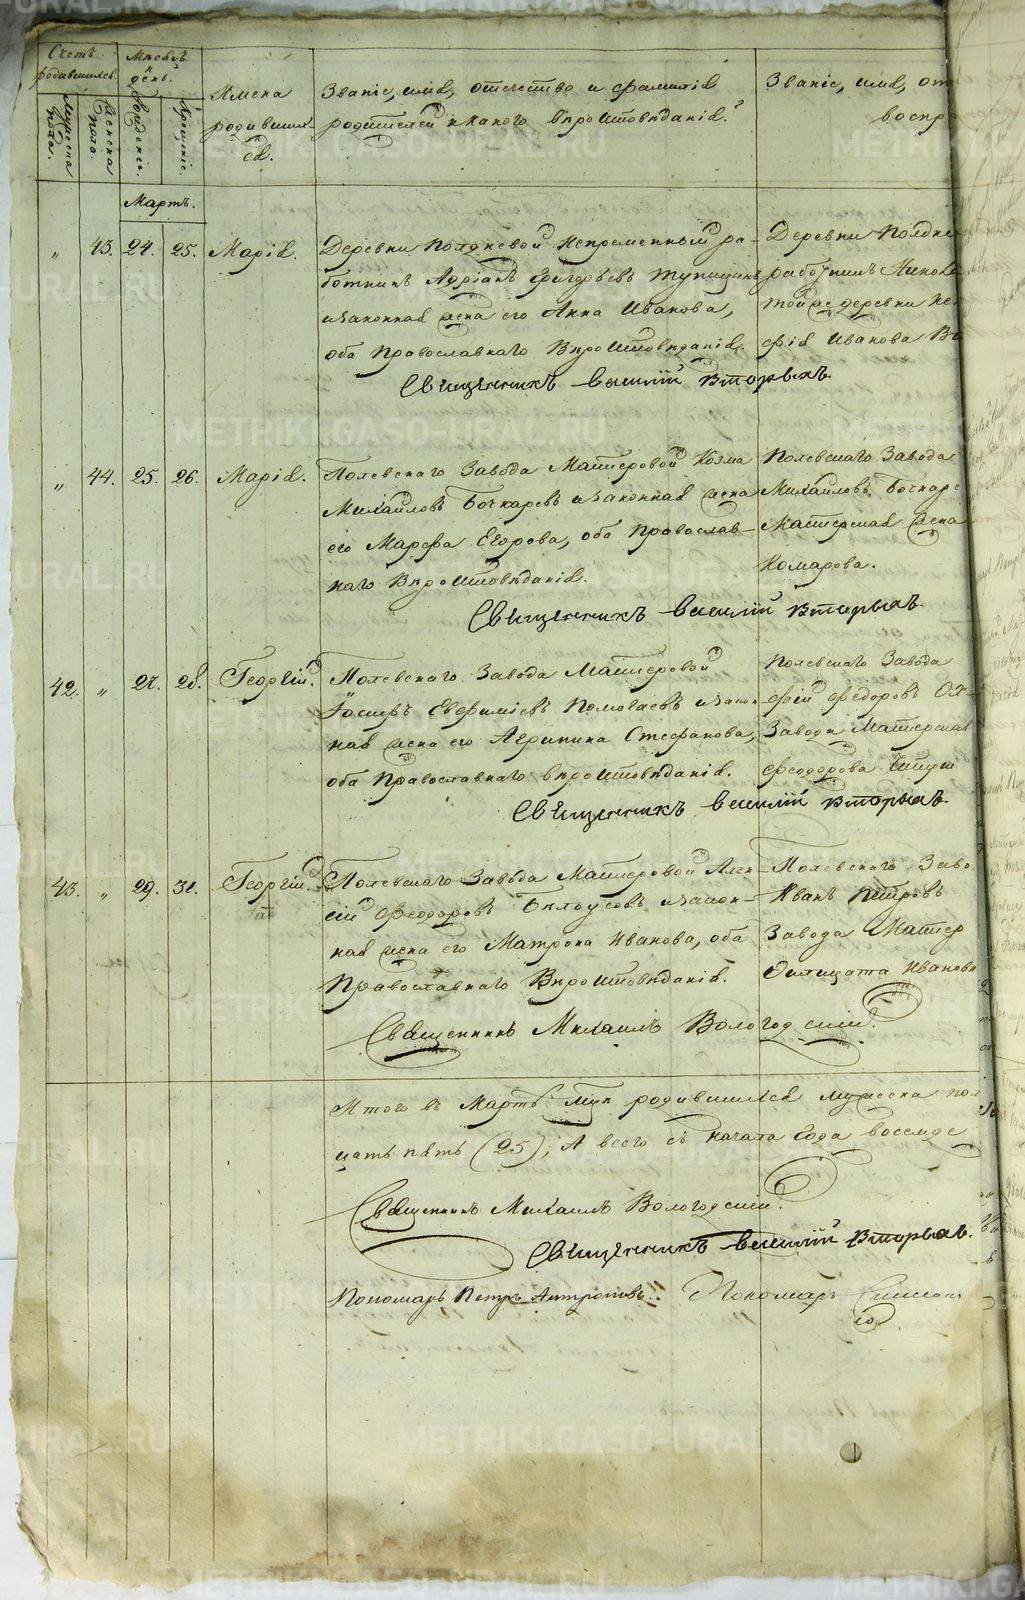 Счетъ родившихся.
Мужеска пола.
Женска пола.
Мѣсяцъ и день.
Рожденія.
Крещенія.
Имена родившихся.
Званіе, имя, отечество и фамилія
родителей и какого вѣроисповѣданія?
Званіе, имя, от
воспр
Мартъ.
„ 43. 24. 25. Марія.
Деревни Полдневой непременный ра-
ботникъ Адріанъ Григорьевъ Тупицинъ
и законная жена его Анна Иванова,
оба Православнаго Вѣроисповѣданія.
Деревни Полдне
работникъ
той же деревни
фія Иванова
Священникъ Василій Вторыхъ.
„ 44. 25. 26. Марія.
Полевскаго Завода Мастеровой Козма
Михайловъ Бочкаревъ и законная жена
его Марфа Егорова, оба Православ-
наго Вѣроисповѣданія.
Полевскаго Завода
Михайловъ Бочкаре
Мастерская жена
Комарова.
Священникъ Василій Вторыхъ.
42. „ 27. 28. Георгій.
Полевскаго Завода Мастеровой
Іосифъ Евфиміевъ Поможаевъ и закон-
ная жена его Агрипина Стефанова,
оба Православнаго вѣроисповѣданія.
Полевскаго Завода
фій Федоровъ
Завода Мастерская
Феодорова
Священникъ Василій Вторыхъ.
43. „ 29. 31. Георгій.
Полевскаго Завода Мастеровой Алек-
сій Феодоровъ Бѣлоусовъ и закон-
ная жена его Матрона Иванова, оба
Православнаго Вѣроисповѣданія.
Полевскаго Заво
Иванъ Петровъ
Завода Мастер
Филицата Иванова
Священникъ Михаилъ Вологодскій.
Итого въ Мартѣ м̃цѣ родившихся мужеска пол
цать пять (25); А всего съ начала года восемьде
Священникъ Михаилъ Вологодскій.
Священникъ Василій Вторыхъ.
Пономарь Петръ Антроповъ. Пономарь
METRIKI.GASO-URAL.RU